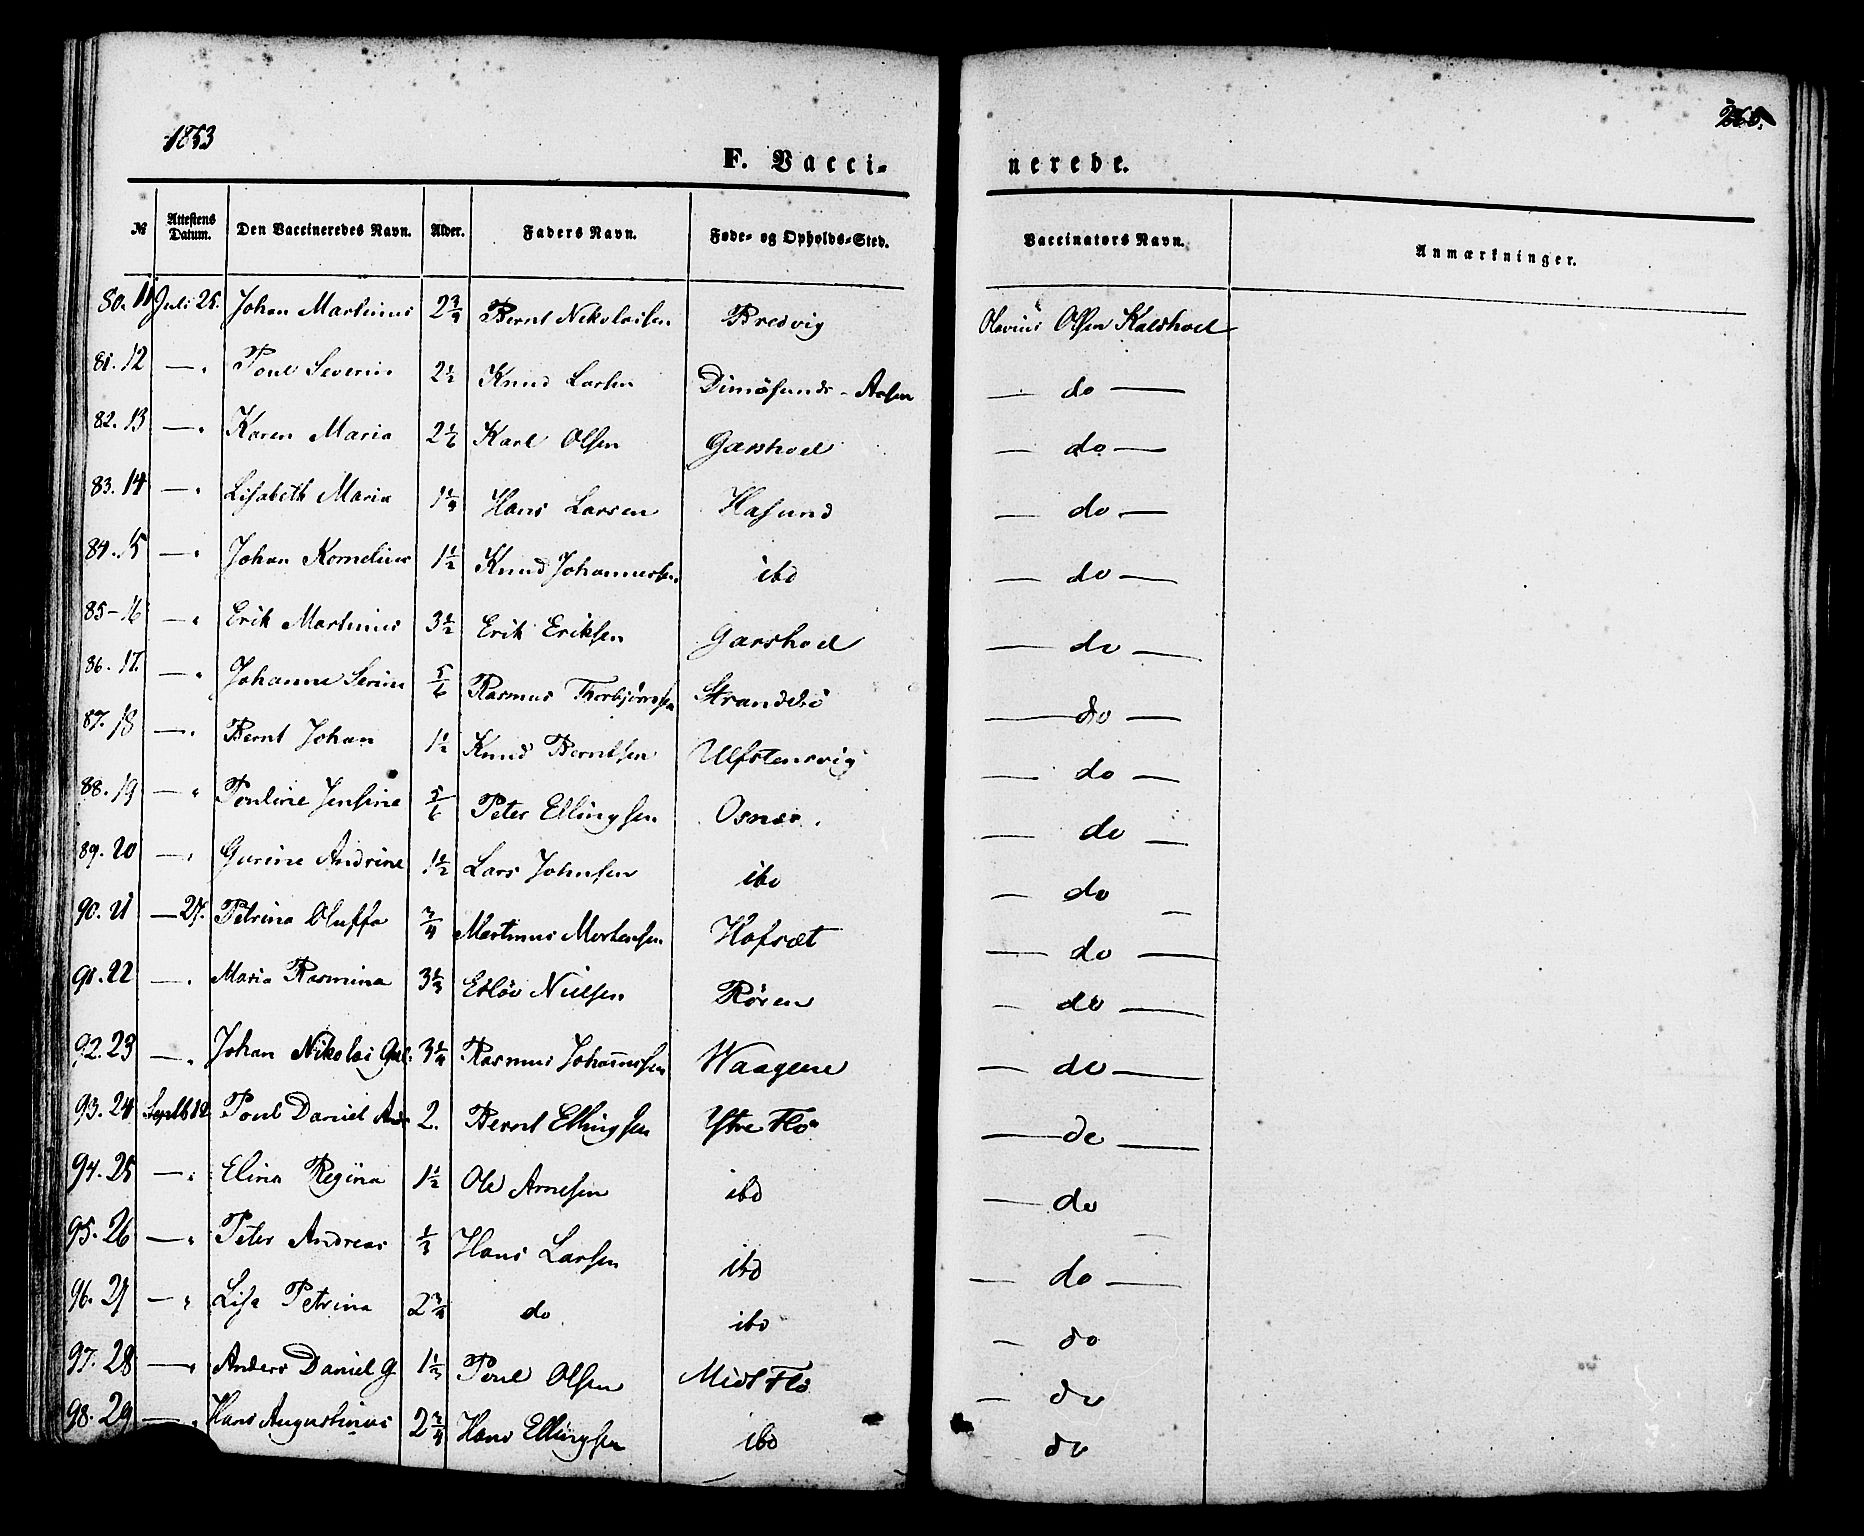 1853
F. Vacci- nerede.
№ Attestens Datum. Den Vaccineredes Navn. Alder. Faders Navn. Føde- og Opholds-Sted. Vaccinators Navn. Anmærkninger.
80. 11 Juli 25. Johan Martinus 2 3/4 Bernt Nikolaisen Bredvig Olavius Olsen Kaldhoel
81. 12 — " Poul Severin 2 1/2 Knud Larsen Dimøsunds-Aasen — do —
82. 13 — " Karen Maria 2 1/6 Karl Olsen Garshoel — do —
83. 14 — " Lisabeth Maria 1 1/4 Hans Larsen Hasund — do —
84. 15 — " Johan Kornelius 1 1/2 Knud Johannessen ibd — do —
85 - 16 — " Erik Martinus 3 1/2 Erik Eriksen Garshoel — do —
86. 17. — " Johanne Serine 5/6 Rasmus Thorbjørnsen Strandebø — do —
87. 18 — " Bernt Johan 1 1/2 Knud Berntsen Ulfstensvig — do —
88. 19 — " Pouline Jensine 5/6 Peter Ellingsen Osnes. — do —
89. 20 — " Gurine Andrine 1 1/2 Lars Johnsen ibd — do —
90. 21 — 27. Petrina Oluffa 3/4 Martinus Mortensen Hofsæt — do —
91. 22 — " Maria Rasmina 3 1/3 Edløv Nielsen Røren — do —
92. 23 — " Johan Nikolai 3 1/4 Rasmus Johannessen Waagene — do —
93. 24 Septb 12 Poul Daniel And 2. Bernt Ellingsen Ystre Flø — do —
94. 25 — " Elina Regina 1 1/2 Ole Arnesen ibd — do —
95. 26 — " Peter Andreas 1/3 Hans Larsen ibd — do —
96. 27 — " Lisa Petrina 2 3/4 do ibd — do
97. 28 — " Anders Daniel G 1 1/3 Poul Olsen Midt Flø — do
98. 29 — " Hans Augustinus 2 3/4 Hans Ellingsen ibd do